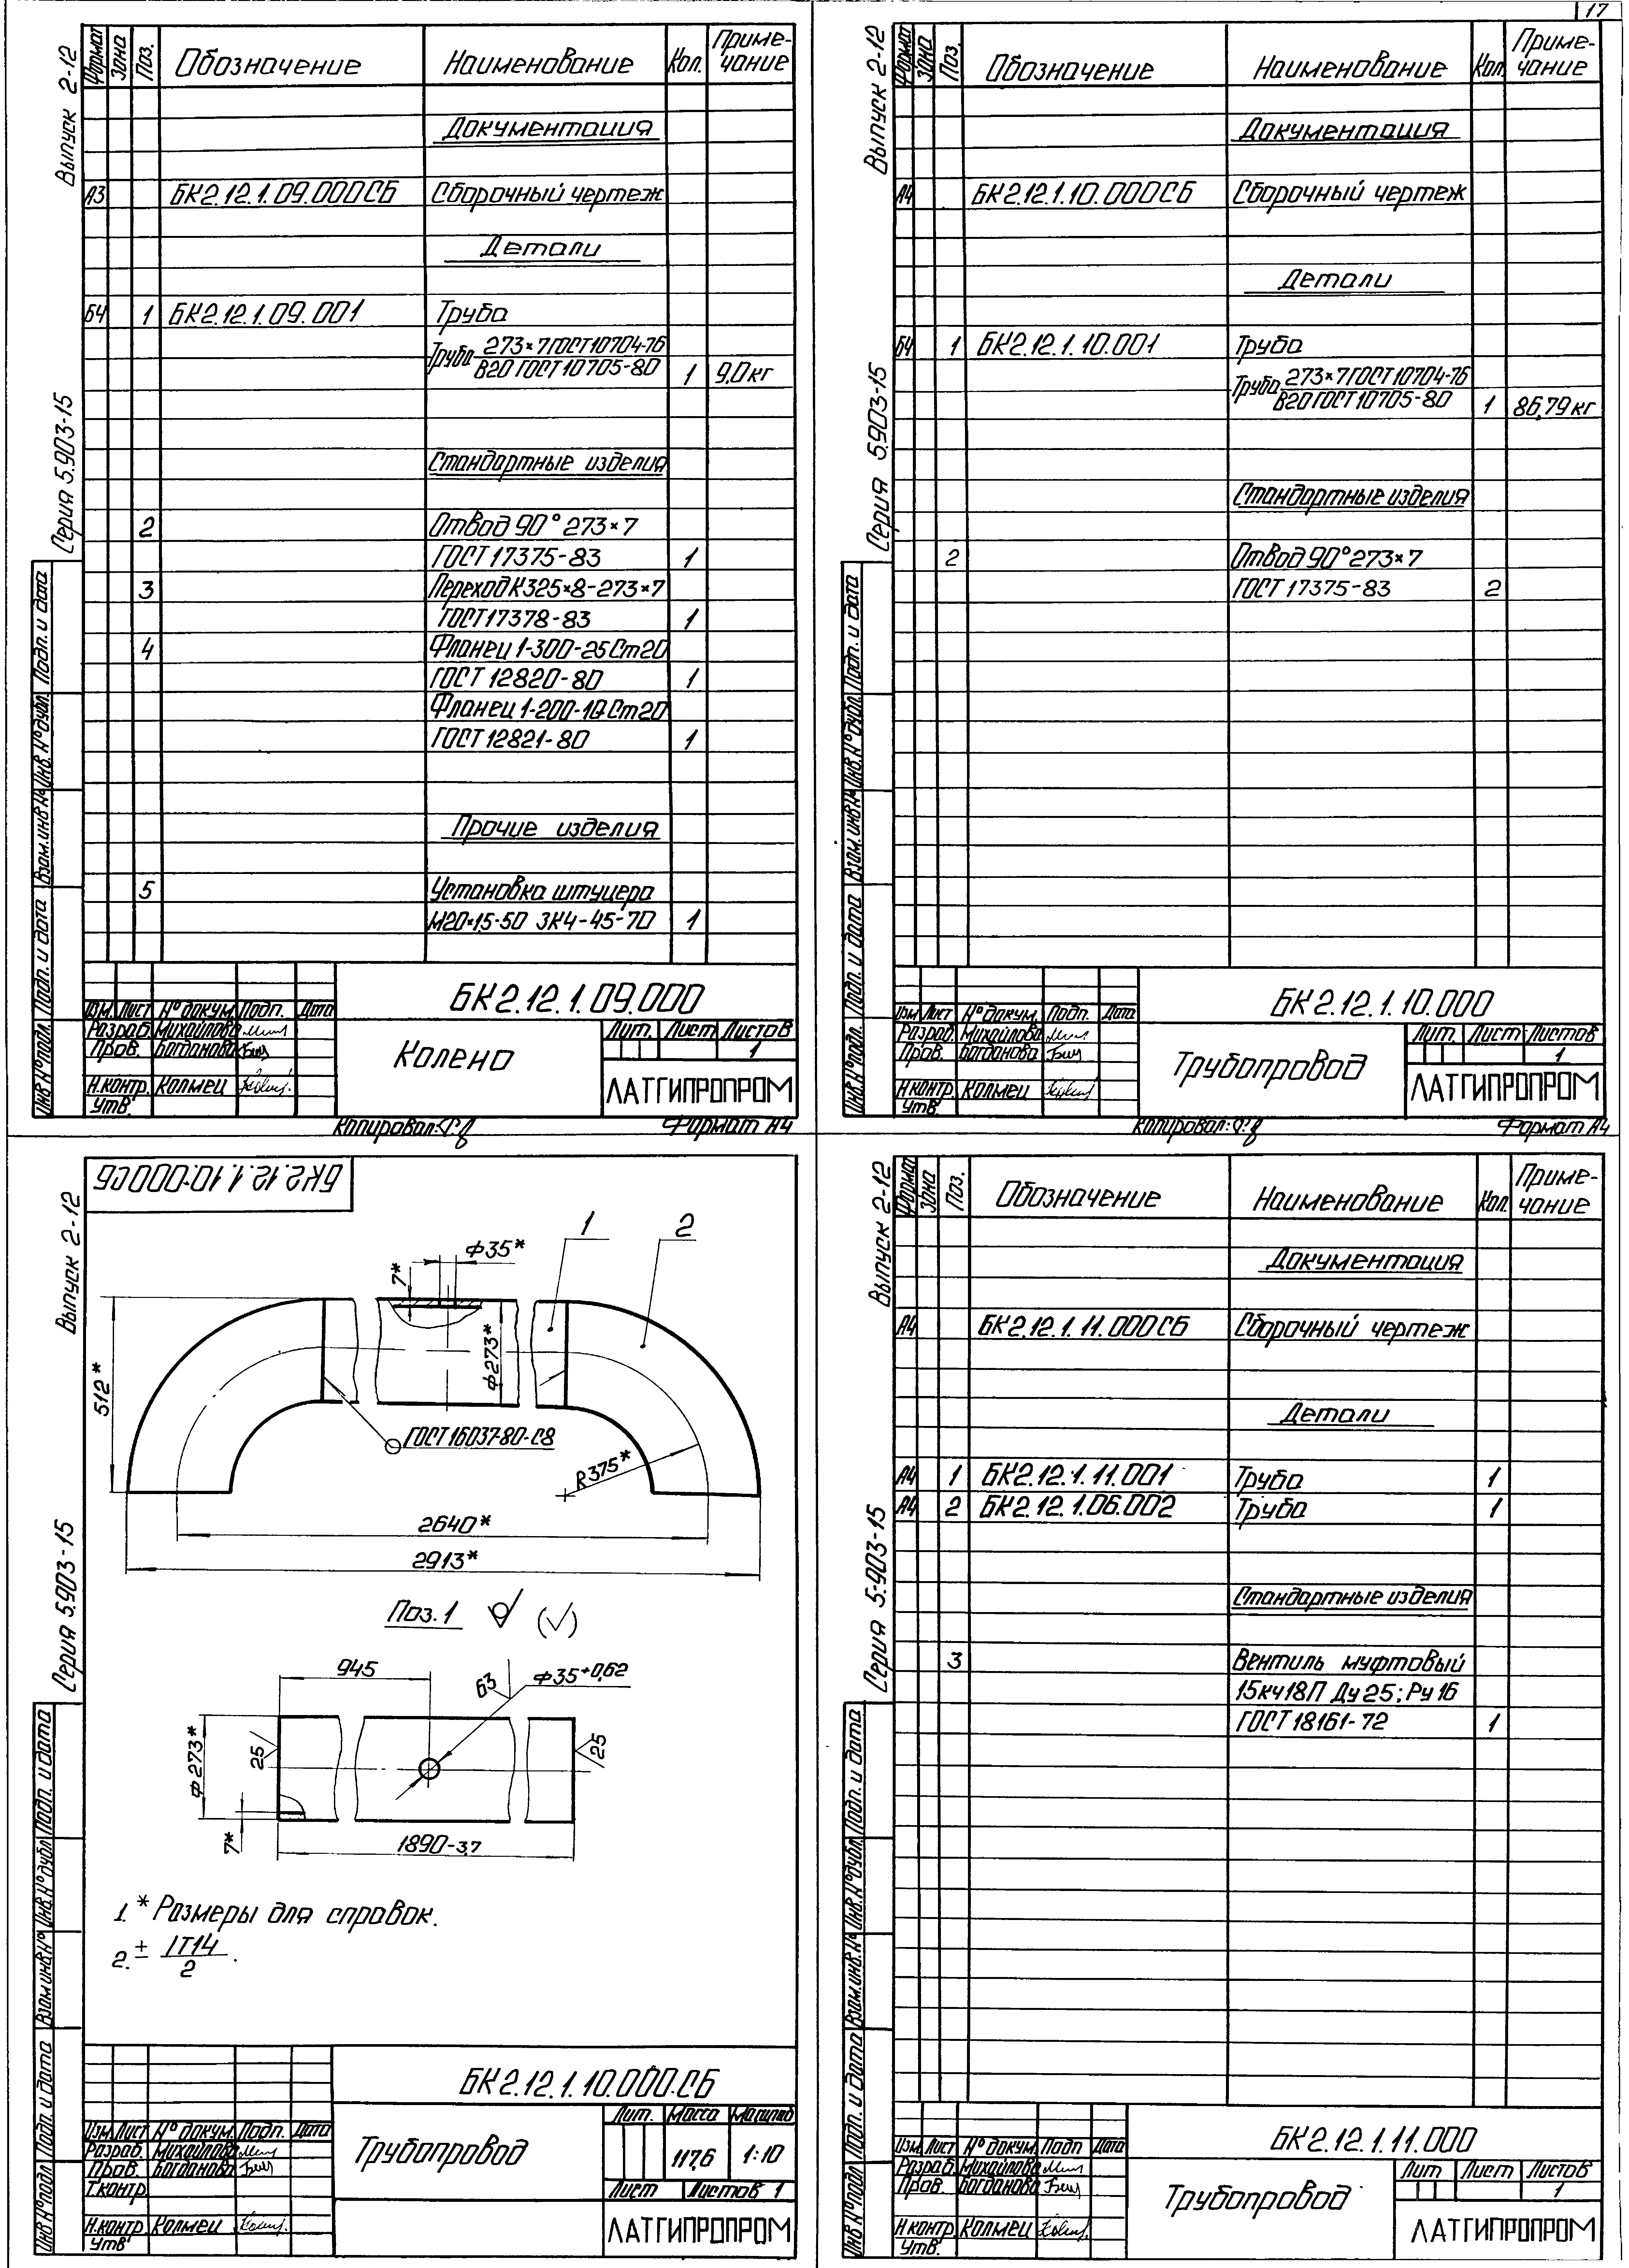 17
Выпуск 2-12
Серия 5.903-15
Формат Зона Поз. Обозначение Наименование Кол. Приме-
чание
Документация
А3 БК2.12.1.09.000СБ Сборочный чертеж
Детали
БЧ 1 БК2.12.1.09.001 Труба
Труба 273×7 ГОСТ 10704-76
В20 ГОСТ 10705-80 1 9,0кг
Стандартные изделия
2 Отвод 90° 273×7
ГОСТ 17375-83 1
3 Переход К325×8-273×7
ГОСТ 17378-83 1
4 Фланец 1-300-25 Ст20
ГОСТ 12820-80 1
Фланец 1-200-10 Ст20
ГОСТ 12821-80 1
Прочие изделия
5 Установка штуцера
М20×1,5-50 ЗК4-45-70 1
Инв.№подл. Подп. и дата Взам.инв.№ Инв.№дубл. Подп. и дата
БК2.12.1.09.000
Изм. Лист №докум. Подп. Дата
Разраб. Михайлова
Пров. Богданова
Н.контр. Колмец
Утв.
Колено
Лит. Лист Листов
1
ЛАТГИПРОПРОМ
Копировал: Формат А4
Выпуск 2-12
Серия 5.903-15
Формат Зона Поз. Обозначение Наименование Кол. Приме-
чание
Документация
А4 БК2.12.1.10.000СБ Сборочный чертеж
Детали
БЧ 1 БК2.12.1.10.001 Труба
Труба 273×7 ГОСТ 10704-76
В20 ГОСТ 10705-80 1 86,79кг
Стандартные изделия
2 Отвод 90° 273×7
ГОСТ 17375-83 2
Инв.№подл. Подп. и дата Взам.инв.№ Инв.№дубл. Подп. и дата
БК2.12.1.10.000
Изм Лист №докум. Подп. Дата
Разраб. Михайлова
Пров. Богданова
Н.контр. Колмец
Утв.
Трубопровод
Лит. Лист Листов
1
ЛАТГИПРОПРОМ
Копировал: Формат А4
БК2.12.1.10.000СБ
Выпуск 2-12
Серия 5.903-15
ф35* 1 2
7*
512*
ф273*
ГОСТ 16037-80-С8
R375*
2640*
2913*
Поз. 1
945 63 ф35+0,62
ф273*
25 25
7*
1890-3,7
1. * Размеры для справок.
2. ± IT14
2 .
Инв.№подл. Подп. и дата Взам.инв.№ Инв.№дубл. Подп. и дата
БК2.12.1.10.000.СБ
Изм. Лист №докум. Подп. Дата
Разраб. Михайлова
Пров. Богданова
Т.контр.
Н.контр. Колмец
Утв
Трубопровод
Лит. Масса Масштаб
117,6 1:10
Лист Листов 1
ЛАТГИПРОПРОМ
Выпуск 2-12
Серия 5.903-15
Формат Зона Поз. Обозначение Наименование Кол. Приме-
чание
Документация
А4 БК2.12.1.11.000СБ Сборочный чертеж
Детали
А4 1 БК2.12.1.11.001 Труба 1
А4 2 БК2.12.1.06.002 Труба 1
Стандартные изделия
3 Вентиль муфтовый
15кч18П Ду 25; Ру 16
ГОСТ 18161-72 1
Инв.№подл. Подп. и дата Взам.инв.№ Инв.№дубл. Подп. и дата
БК2.12.1.11.000
Изм. Лист №докум. Подп Дата
Разраб. Михайлова
Пров. Богданова
Н.контр. Колмец
Утв.
Трубопровод
Лит Лист Листов
1
ЛАТГИПРОПРОМ